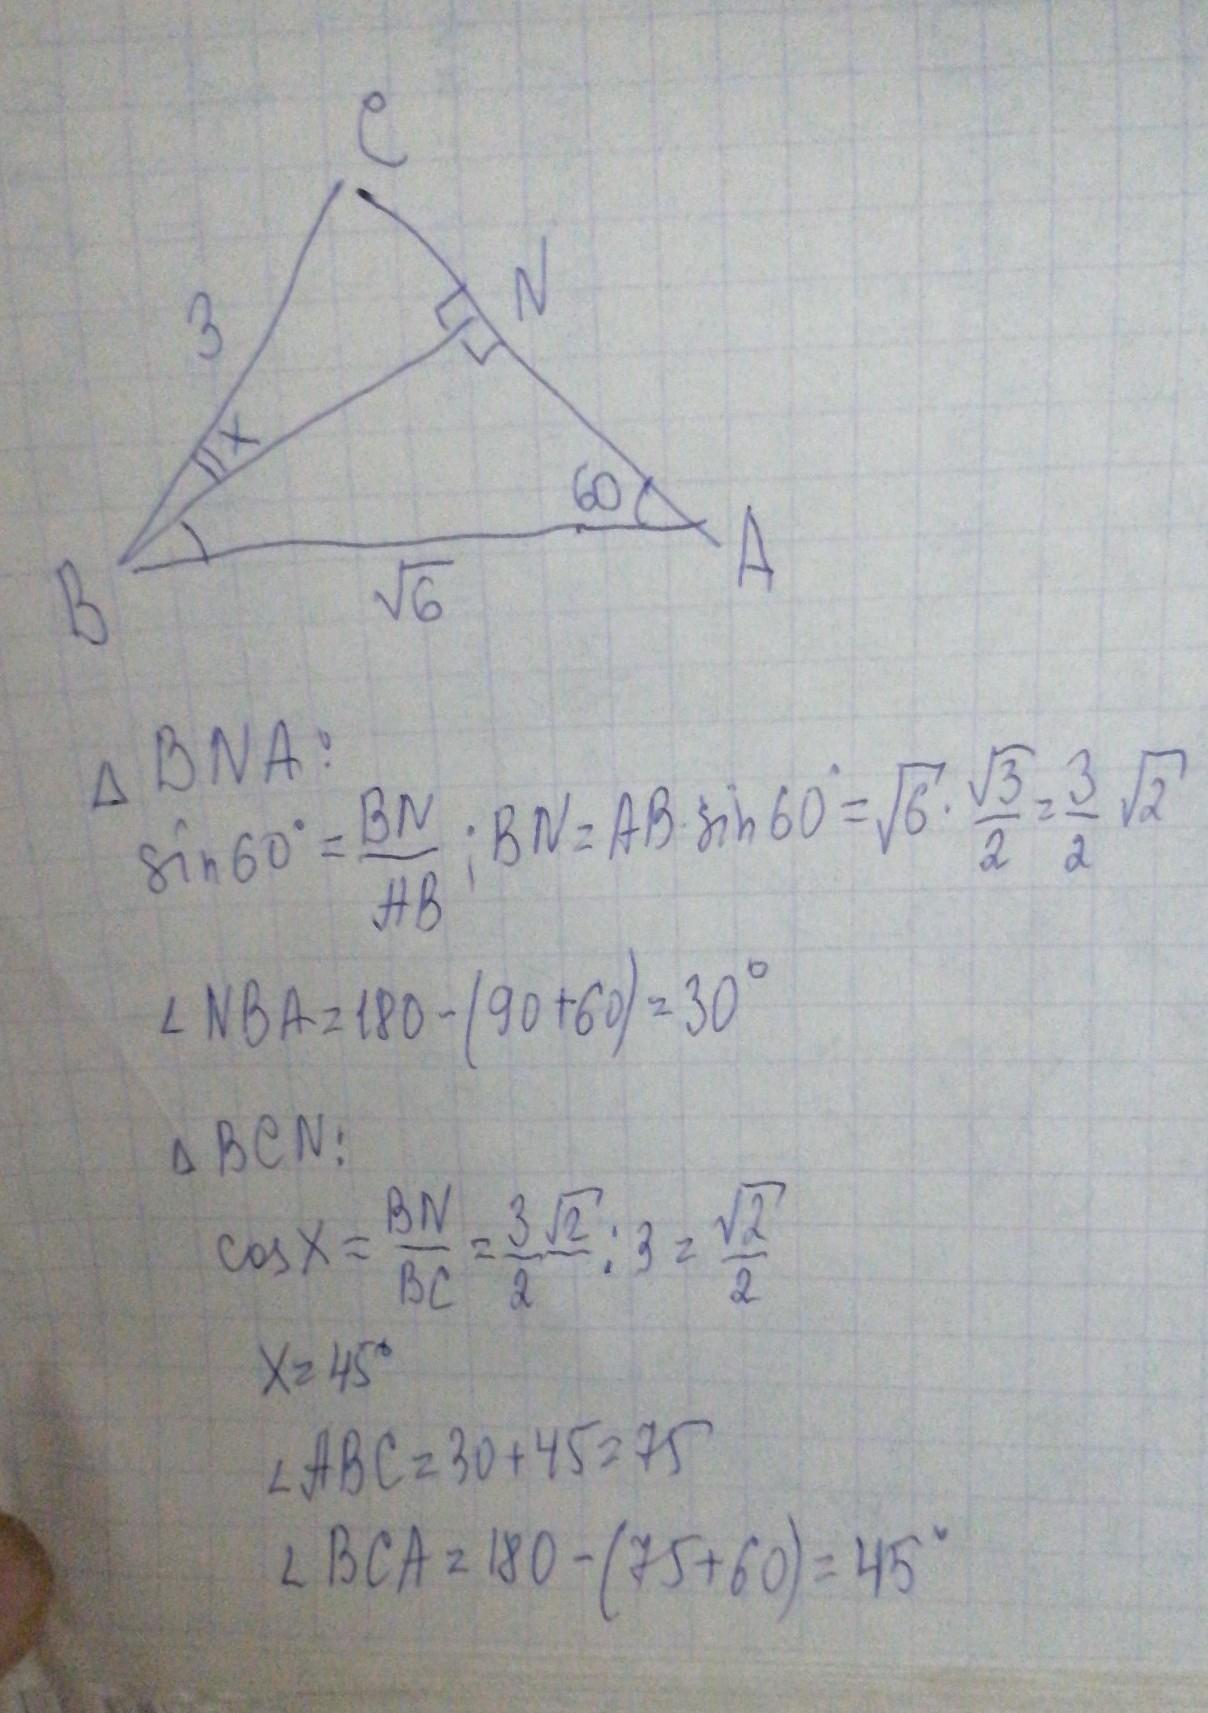 C
N
3
x
60
A
B
√6
△ BNA:
sin60° = BN/AB ; BN = AB · sin60° = √6 · √3/2 = 3/2 √2
∠ NBA = 180 - (90+60) = 30°
△ BCN:
cos x = BN/BC = 3√2/2 : 3 = √2/2
x = 45°
∠ ABC = 30 + 45 = 75
∠ BCA = 180 - (75+60) = 45°